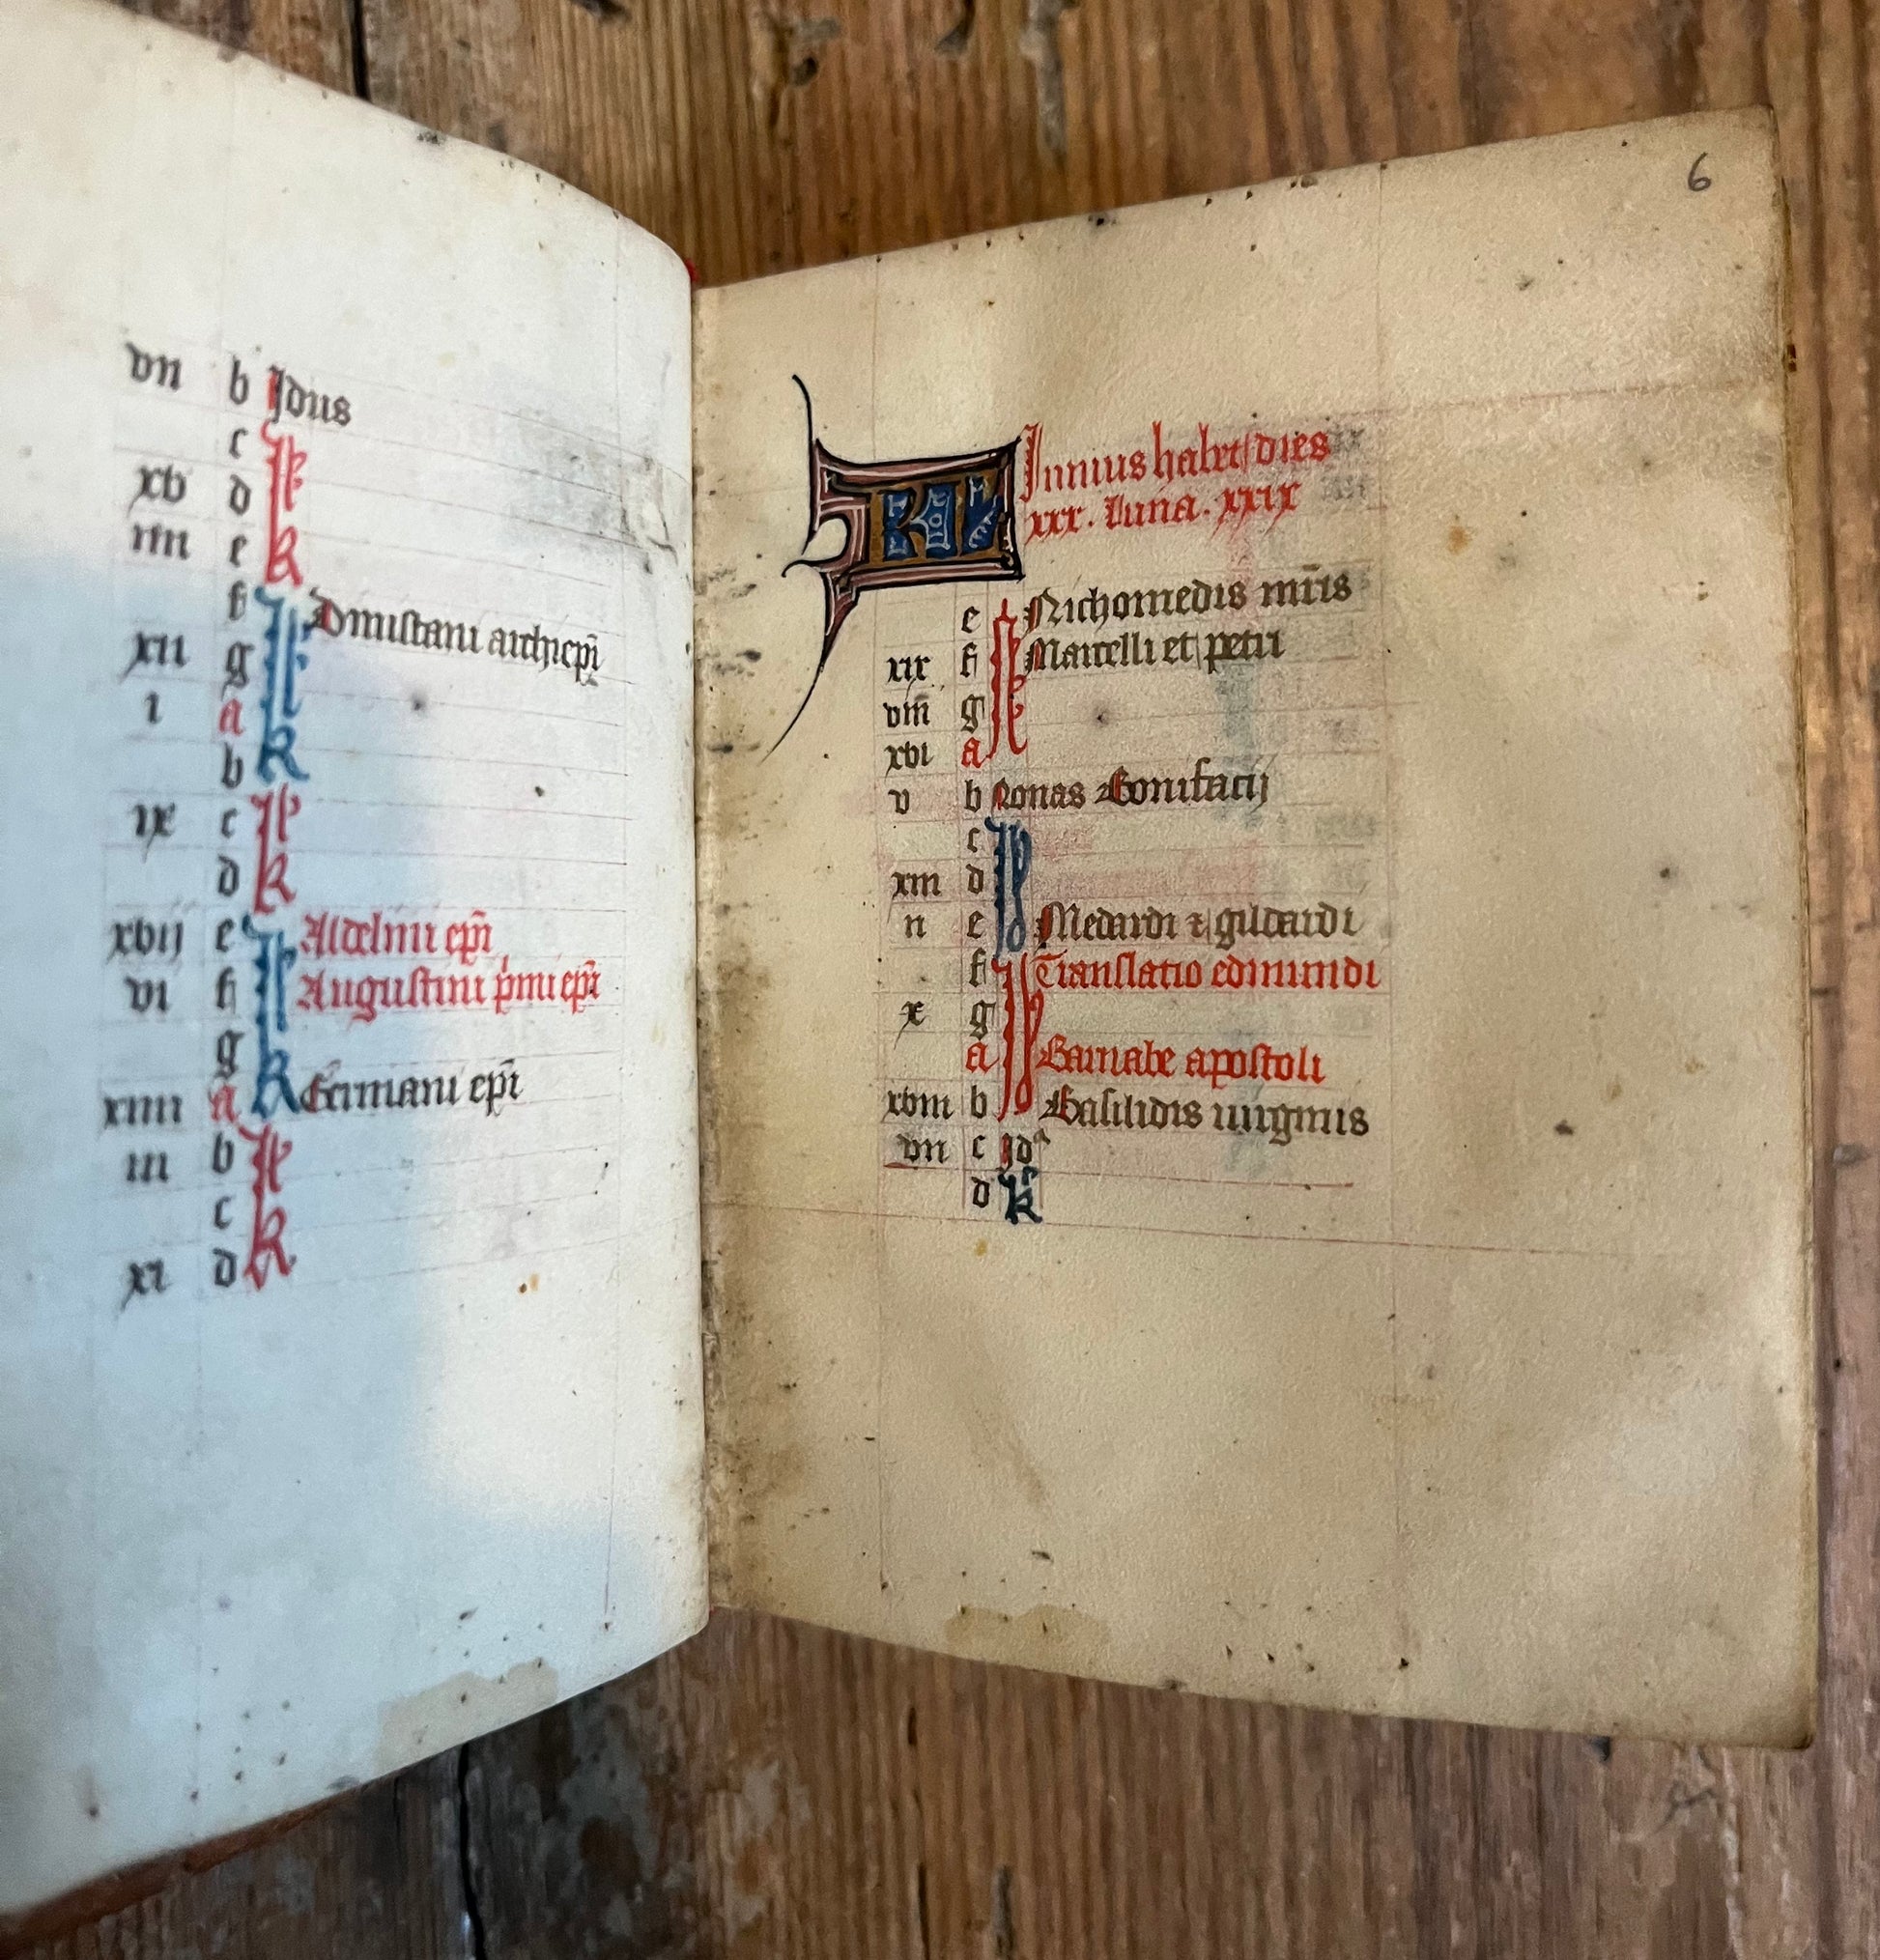 vii b Idus
c
xv d k
iiii e k
f Dunstani archiepi
xii g k
i a
b k
ix c k
d k
xvij e Aldelmi epi
vi f Augustini pmi epi
g
xiiii a k Germani epi
iii b k
c
xi d k
6
KL Iunius habet dies
xxx. Luna. xxix
e Nichomedis mris
xix f Marcelli et petri
viii g
xvi a
v b Nonas Bonifacij
c
xiii d
ii e Medardi & gildardi
f Translatio edmundi
x g
a Barnabe apostoli
xviii b Basilidis uirginis
vii c Id
d k